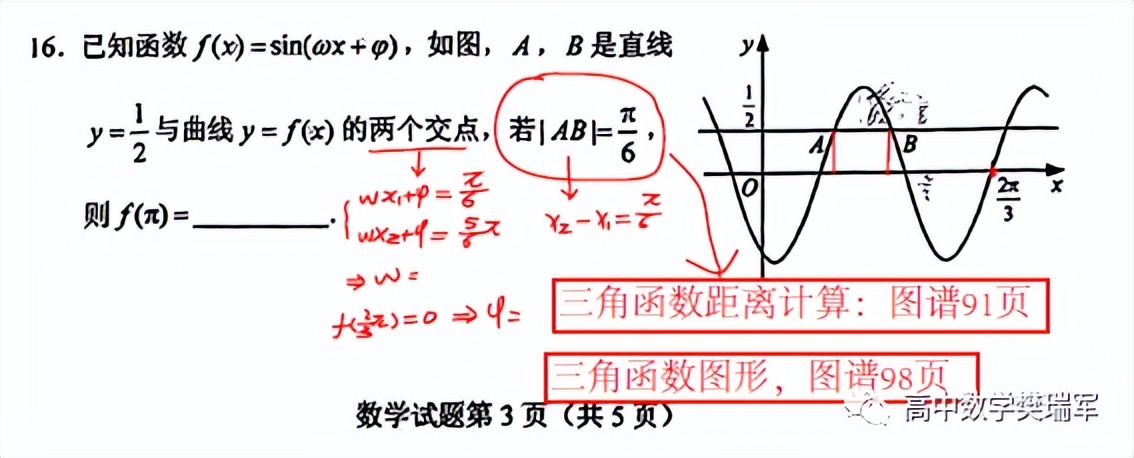 16. 已知函数 f(x)=sin(ωx+φ)，如图，A，B 是直线
y=1/2 与曲线 y=f(x) 的两个交点，若|AB|=π/6，
则 f(π)=________.
wx₁+φ=π/6
wx₂+φ=5/6π
⇒ w=
f(2/3π)=0 ⇒ φ=
x₂-x₁=π/6
y
1/2
A
B
O
2π/3
x
三角函数距离计算：图谱91页
三角函数图形，图谱98页
数学试题第 3 页（共 5 页）
高中数学樊瑞军